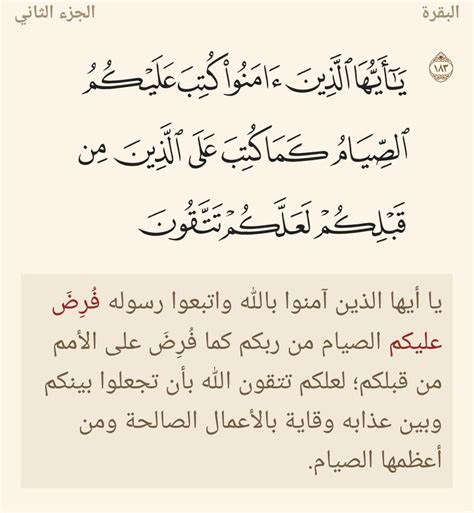 البقرة الجزء الثاني
١٨٣ يَٰٓأَيُّهَا ٱلَّذِينَ ءَامَنُوا۟ كُتِبَ عَلَيْكُمُ
ٱلصِّيَامُ كَمَا كُتِبَ عَلَى ٱلَّذِينَ مِن
قَبْلِكُمْ لَعَلَّكُمْ تَتَّقُونَ
يا أيها الذين آمنوا بالله واتبعوا رسوله فُرِضَ
عليكم الصيام من ربكم كما فُرِضَ على الأمم
من قبلكم؛ لعلكم تتقون الله بأن تجعلوا بينكم
وبين عذابه وقاية بالأعمال الصالحة ومن
أعظمها الصيام.